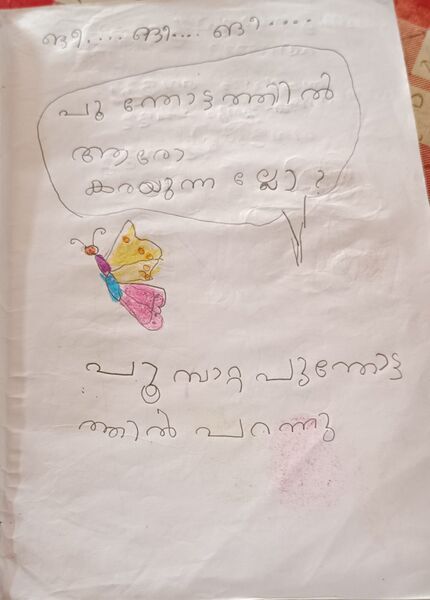 ങ്ങീ.... ങ്ങീ.... ങ്ങീ.....
പൂ ന്തോട്ടത്തിൽ
ആരോ
കരയുന്ന ല്ലോ ?
പൂ മ്പാറ്റ പൂന്തോട്ട
ത്തിൽ പറന്നു